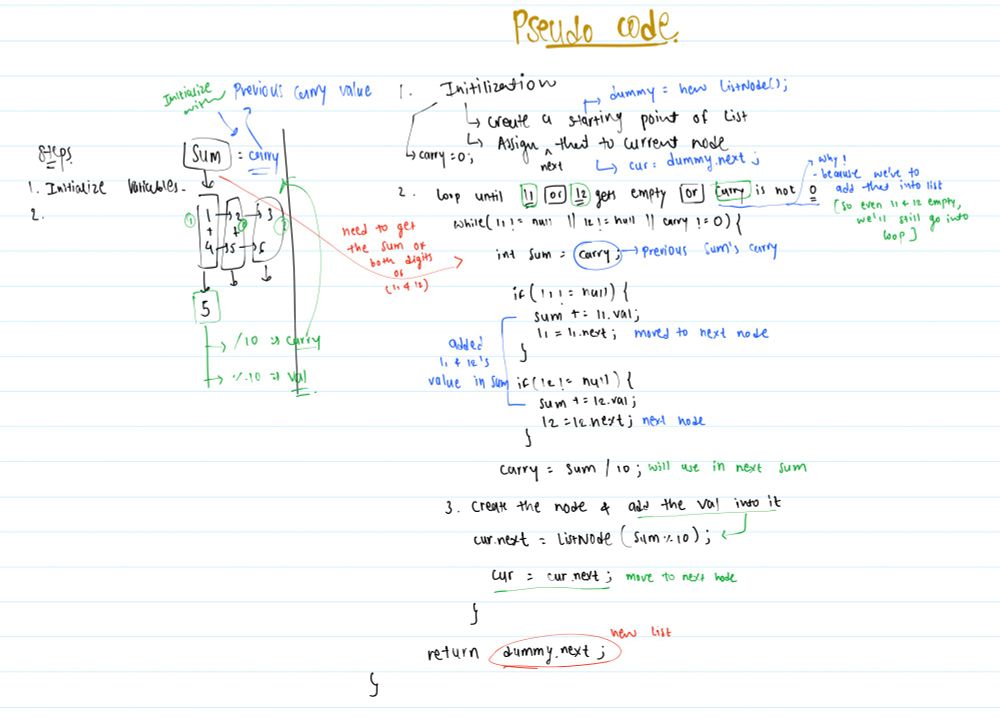 Pseudo code.
Initialize with
Previous Carry value
Sum = carry
Steps.
1. Initialize Variables.
2.
① 1 → 2 → 3
+ +
4 → 5 → 6
5
→ /10 ⇒ carry
→ %10 ⇒ val
need to get
the sum of
both digits
of
(l1 & l2)
1. Initilization
→ dummy = new ListNode();
↳ Create a starting point of List
↳ Assign ^ that to current node
next
↳ carry=0;
↳ cur = dummy.next;
2. loop until l1 or l2 gets empty or carry is not 0
why!
- because we've to
add that into list
[so even l1 & l2 empty,
we'll still go into
loop]
while(l1 != null || l2 != null || carry != 0) {
int sum = carry; → Previous Sum's carry
if (l1 != null) {
sum += l1.val;
l1 = l1.next; moved to next node
}
added
l1 & l2's
value in sum
if (l2 != null) {
sum += l2.val;
l2 = l2.next; next node
}
carry = sum / 10; will use in next sum
3. Create the node & add the val into it
cur.next = ListNode (sum%10);
cur = cur.next; move to next node
}
return dummy.next;
new list
}